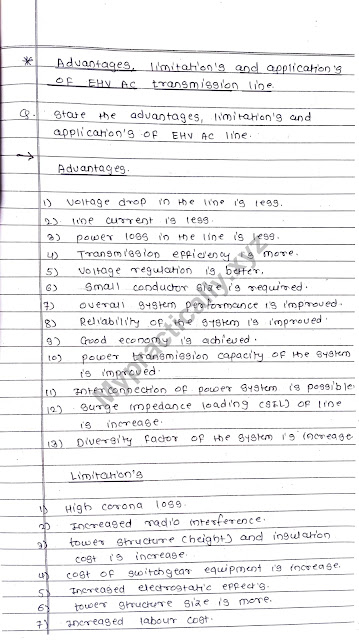 * Advantages, limitation's and application's
OF EHV AC transmission line.
Q. State the advantages, limitation's and
application's OF EHV AC line.
→
Advantages.
1) Voltage drop in the line is less.
2) line current is less.
3) power loss in the line is less.
4) Transmission efficiency is more.
5) Voltage regulation is better.
6) Small conductor size is required.
7) overall system performance is improved.
8) Reliability of the system is improved.
9) Good economy is achieved.
10) power transmission capacity of the system
is improved.
11) Interconnection of power system is possible
12) Surge impedance loading (SIL) of line
is increase.
13) Diversity factor of the system is increase
Limitation's
1) High corona loss.
2) Increased radio interference.
3) tower structure (height) and insulation
cost is increase.
4) cost of switchgear equipment is increase.
5) Increased electrostatic effect's.
6) tower structure size is more.
7) Increased labour cost.
Mypractically.xyz